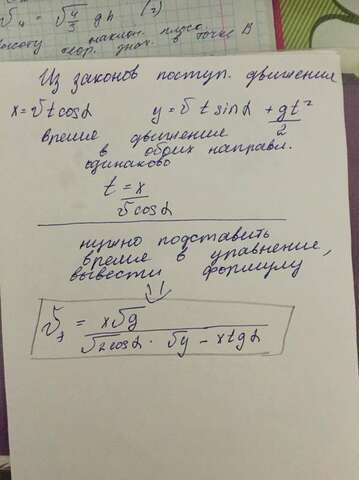 v₄ = √4/3 gh (2)
высоту наклон. плуср
скор. знач. в точке В
Из законов поступ. движения
x = v t cos α y = v t sin α + gt²/2
время движение
в обоих направл.
одинаково
t = x / v cos α
нужно подставить
время в уравнение,
вывести формулу
v₁ = x√g / √2 cos α · √y − x tg α